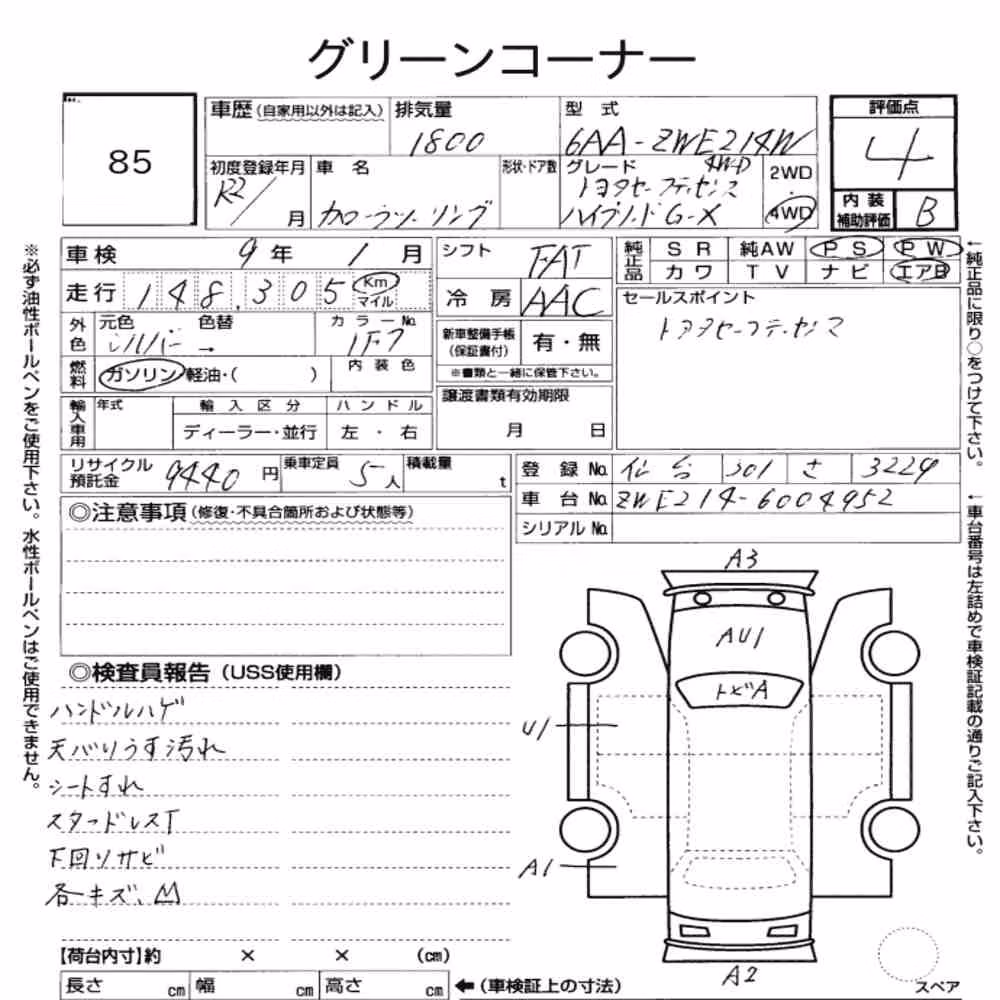 グリーンコーナー
85
車歴(自家用以外は記入) 排気量 型式
1800 6AA-ZWE214W
評価点
4
初度登録年月 車名 形状・ドア数 グレード 4WD 2WD
R2/ 月 カローラツーリング トヨタセーフティセンス
ハイブリッドG-X 4WD
内装
補助評価 B
車検 9年 1月
走行 148,305 Km
マイル
外色 元色 色替 カラーNo.
シルバー → 1F7
燃料 ガソリン 軽油・( ) 内装色
輸入車用 年式 輸入区分 ハンドル
ディーラー・並行 左・右
シフト FAT
冷房 AAC
新車整備手帳
(保証書付) 有・無
※書類と一緒に保管下さい。
譲渡書類有効期限
月 日
純正品 SR 純AW PS PW
カワ TV ナビ エアB
セールスポイント
トヨタセーフティセンス
リサイクル
預託金 9440円 乗車定員 5人 積載量 t
登録No. 仙台 301 さ 3229
車台No. ZWE214-6004952
シリアルNo.
◎注意事項(修復・不具合箇所および状態等)
◎検査員報告(USS使用欄)
ハンドルハゲ
天バリうす汚れ
シートすれ
スタッドレスT
下回りサビ
各キズ、凹
A3
AU1
トビA
U1
A1
A2
スペア
【荷台内寸】約 × × (cm)
長さ cm 幅 cm 高さ cm ←(車検証上の寸法)
※必ず油性ボールペンをご使用下さい。水性ボールペンはご使用できません。
←純正品に限り○をつけて下さい。
←車台番号は左詰めで車検証記載の通りご記入下さい。